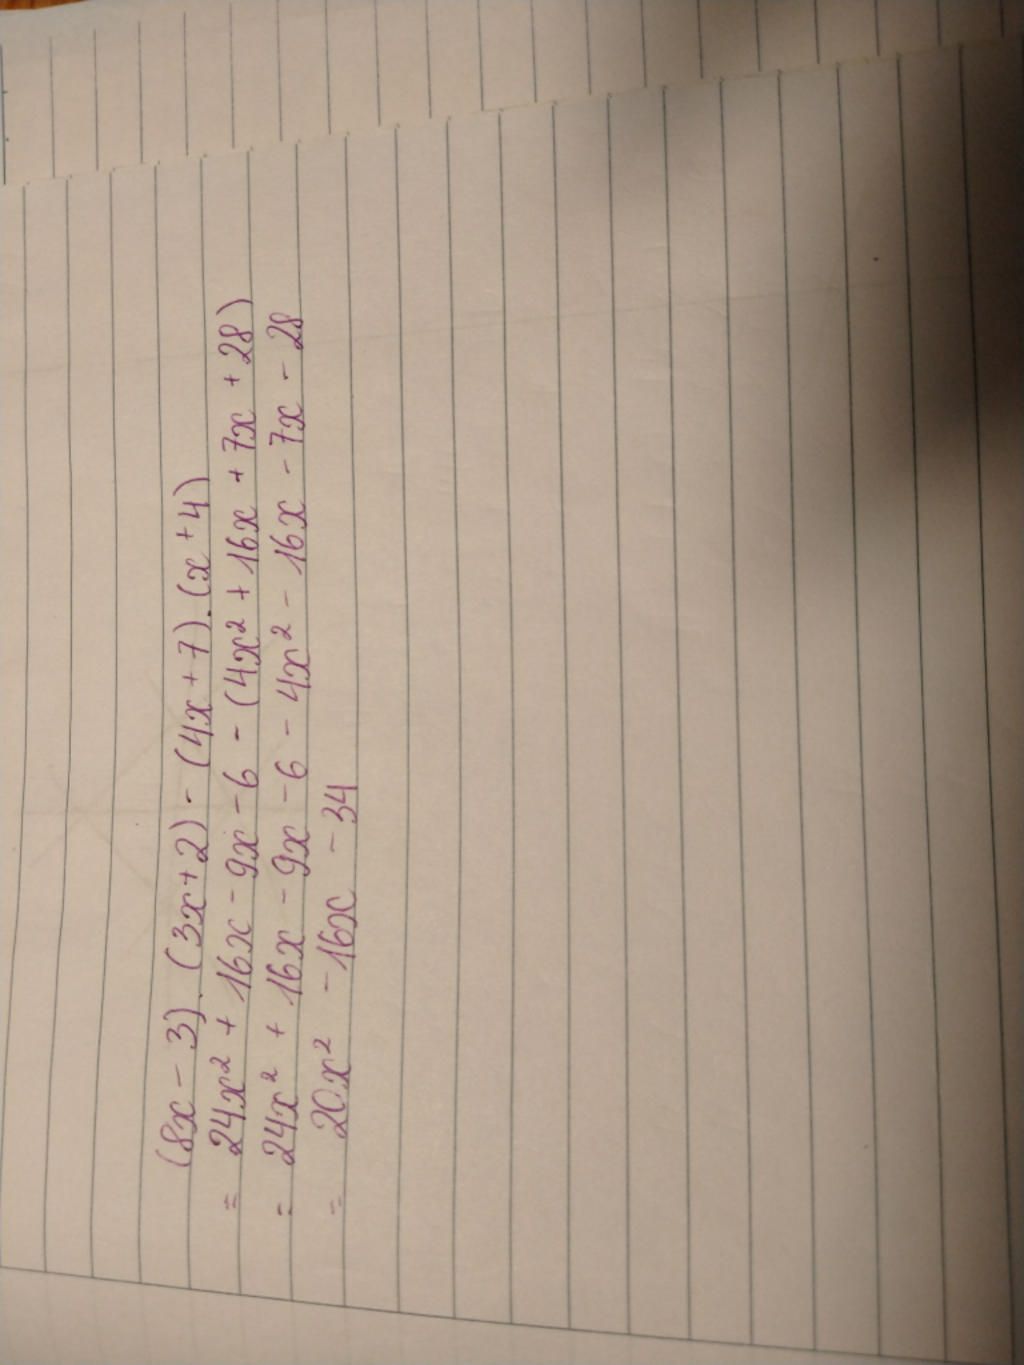 (8x - 3).(3x+2) - (4x+7).(x+4)
= 24x² + 16x - 9x - 6 - (4x² + 16x + 7x + 28)
= 24x² + 16x - 9x - 6 - 4x² - 16x - 7x - 28
= 20x² - 16x - 34